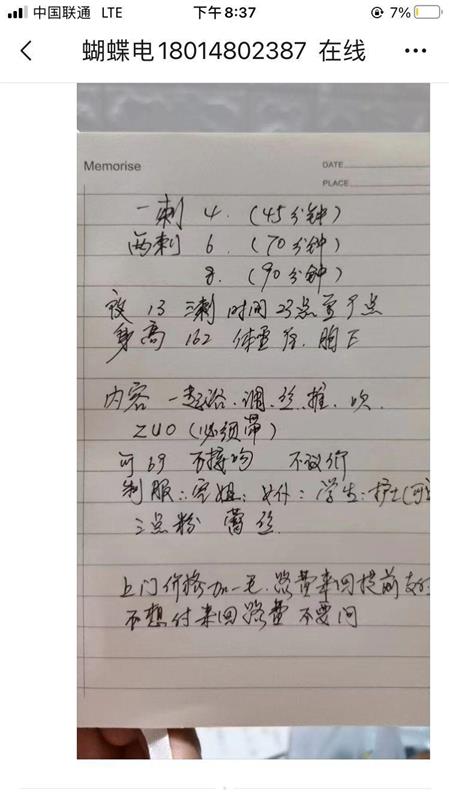 中国联通 LTE 下午8:37 7%
蝴蝶电18014802387 在线
Memorise DATE
PLACE
一刺 4. (45分钟)
两刺 6. (70分钟)
8. (90分钟)
夜 13 三刺 时间23点至7点
身高 162 体重 胸F
内容 一起浴.调.丝.推.吹
ZUO (必须带)
可69 可接吻 不议价
制服:空姐:女仆:学生:护士
三点粉 蕾丝
上门价格加一毛.路费来回提前
不想付来回路费 不要问